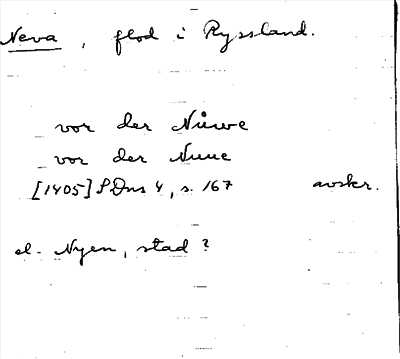 Neva, flod i Ryssland.
vor der Nůwe
vor der Nuue
[1405] SDns 4, s. 167 avskr.
el. Nyen, stad?